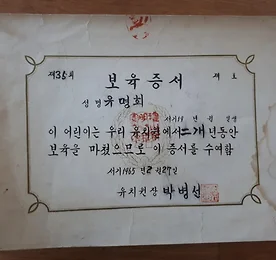 제35호 제 호
보육증서
성명 유명희
서기19 년 월 일생
이 어린이는 우리 유치원에서 二개년동안
보육을 마쳤으므로 이 증서를 수여함
서기1965년 2월 27일
유치원장 박병선